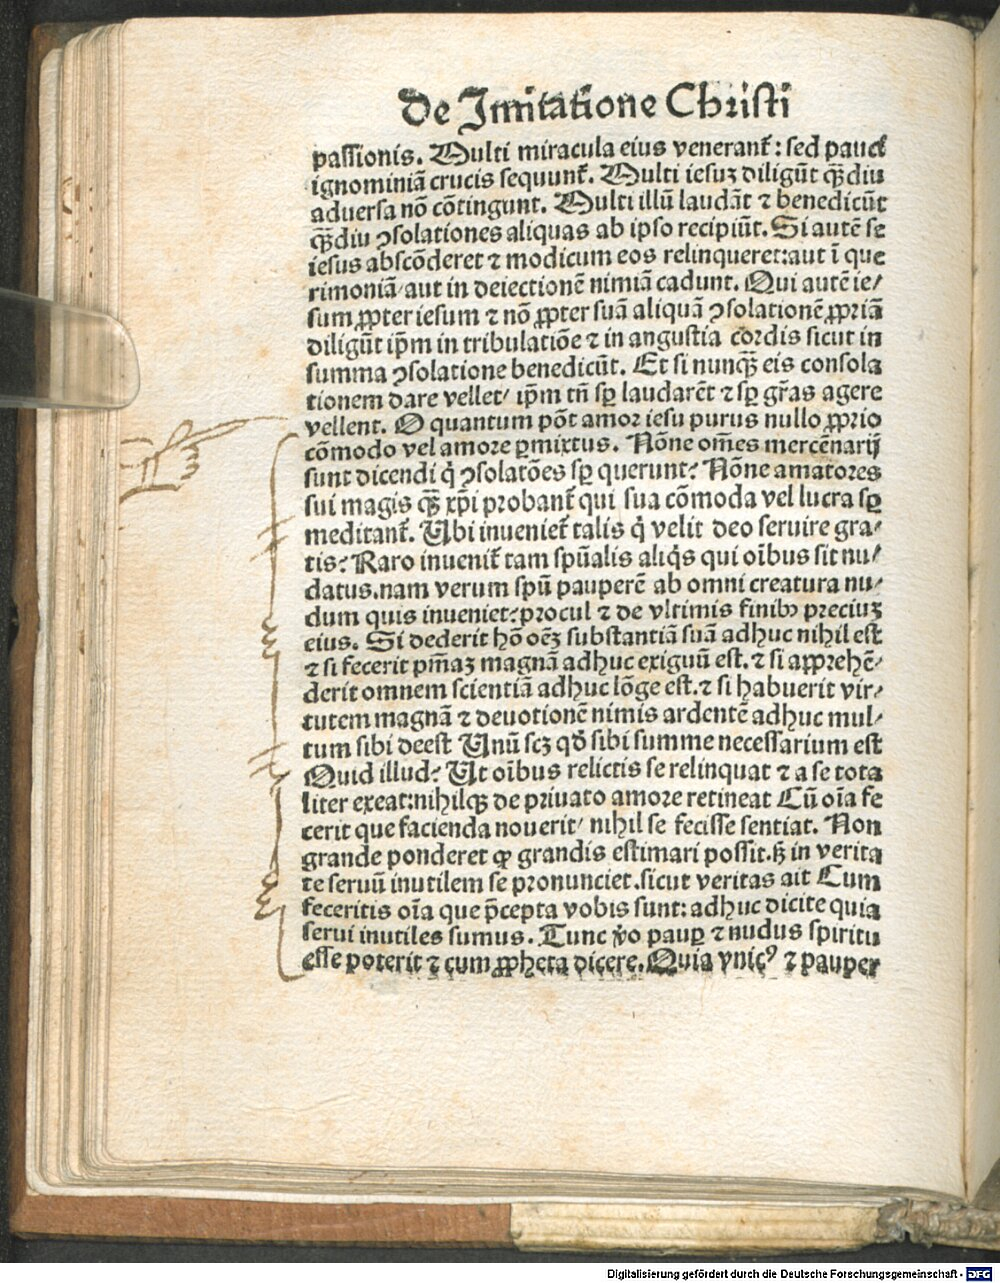 De Imitatione Christi
passionis. Multi miracula eius venerant᷑: sed pauci
ignominiā crucis sequunt᷑. Multi iesuȝ diligūt qꝫ̄diu
aduersa nō cōtingunt. Multi illū laudāt ⁊ benedicūt
qꝫ̄diu ꝯsolationes aliquas ab ipso recipiūt. Si autē se
iesus abscōderet ⁊ modicum eos relinqueret: aut ī que
rimoniā/ aut in deiectionē nimiā cadunt. Qui autē ie/
sum ꝓpter iesum ⁊ nō ꝓpter suā aliquā ꝯsolationē ꝓpriā
diligūt ip̄m in tribulatiōe ⁊ in angustia cordis sicut in
summa ꝯsolatione benedicūt. Et si nunqꝫ̄ eis consola
tionem dare vellet/ ip̄m tn̄ sꝑ laudarēt ⁊ sꝑ gr̄as agere
vellent. O quantum pōt amor iesu purus nullo ꝓprio
cōmodo vel amore ꝑmixtus. Nōne om̄es mercēnarij
sunt dicendi q̇ ꝯsolatōes sꝑ querunt? Nōne amatores
sui magis qꝫ̄ xp̄i probant᷑ qui sua cōmoda vel lucra sꝑ
meditant᷑. Ubi inueniet᷑ talis q̇ velit deo seruire gra/
tis? Raro inuenit᷑ tam spūalis aliq̇s qui oībus sit nu/
datus. nam verum spū pauperē ab omni creatura nu/
dum quis inueniet? procul ⁊ de vltimis finibꝫ preciuȝ
eius. Si dederit hō oēȝ substantiā suā adhuc nihil est
⁊ si fecerit pn̄iaȝ magnā adhuc exiguū est. ⁊ si apprehē/
derit omnem scientiā adhuc lōge est. ⁊ si habuerit vir/
tutem magnā ⁊ deuotionē nimis ardentē adhuc mul/
tum sibi deest Unū scȝ qd̄ sibi summe necessarium est
Quid illud? Ut oībus relictis se relinquat ⁊ a se tota
liter exeat: nihilqꝫ de priuato amore retineat Cū oīa fe
cerit que facienda nouerit/ nihil se fecisse sentiat. Non
grande ponderet ꝙ grandis estimari possit. sꝫ in verita
te seruū inutilem se pronunciet. sicut veritas ait Cum
feceritis oīa que p̄cepta vobis sunt: adhuc dicite quia
serui inutiles sumus. Tunc v̊o pauꝑ ⁊ nudus spiritu
esse poterit ⁊ cum ꝓpheta dicere. Quia vnicꝰ ⁊ pauper
Digitalisierung gefördert durch die Deutsche Forschungsgemeinschaft - DFG